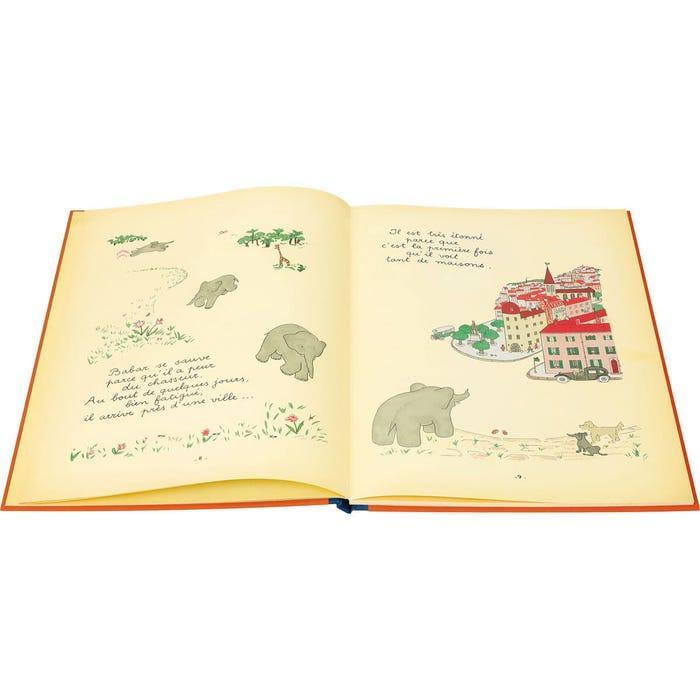 Babar se sauve
parce qu'il a peur
du chasseur.
Au bout de quelques jours,
bien fatigué,
il arrive près d'une ville ...
. 8 .
Il est très étonné
parce que
c'est la première fois
qu'il voit
tant de maisons.
. 9 .